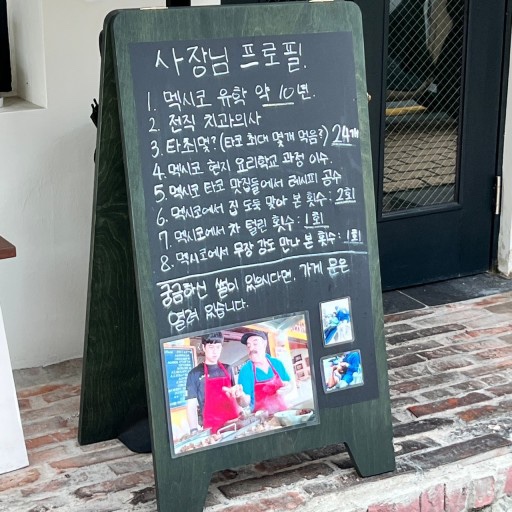 사장님 프로필.
1. 멕시코 유학 약 10년.
2. 전직 치과의사
3. 타최몇? (타코 최대 몇개 먹음?) 24개
4. 멕시코 현지 요리학교 과정 이수.
5. 멕시코 타코 맛집들에서 레시피 공수
6. 멕시코에서 집 도둑 맞아 본 횟수: 2회
7. 멕시코에서 차 털린 횟수: 1회
8. 멕시코에서 무장 강도 만나 본 횟수: 1회
궁금하신 썰이 있으시다면, 가게 문은
열려 있습니다.